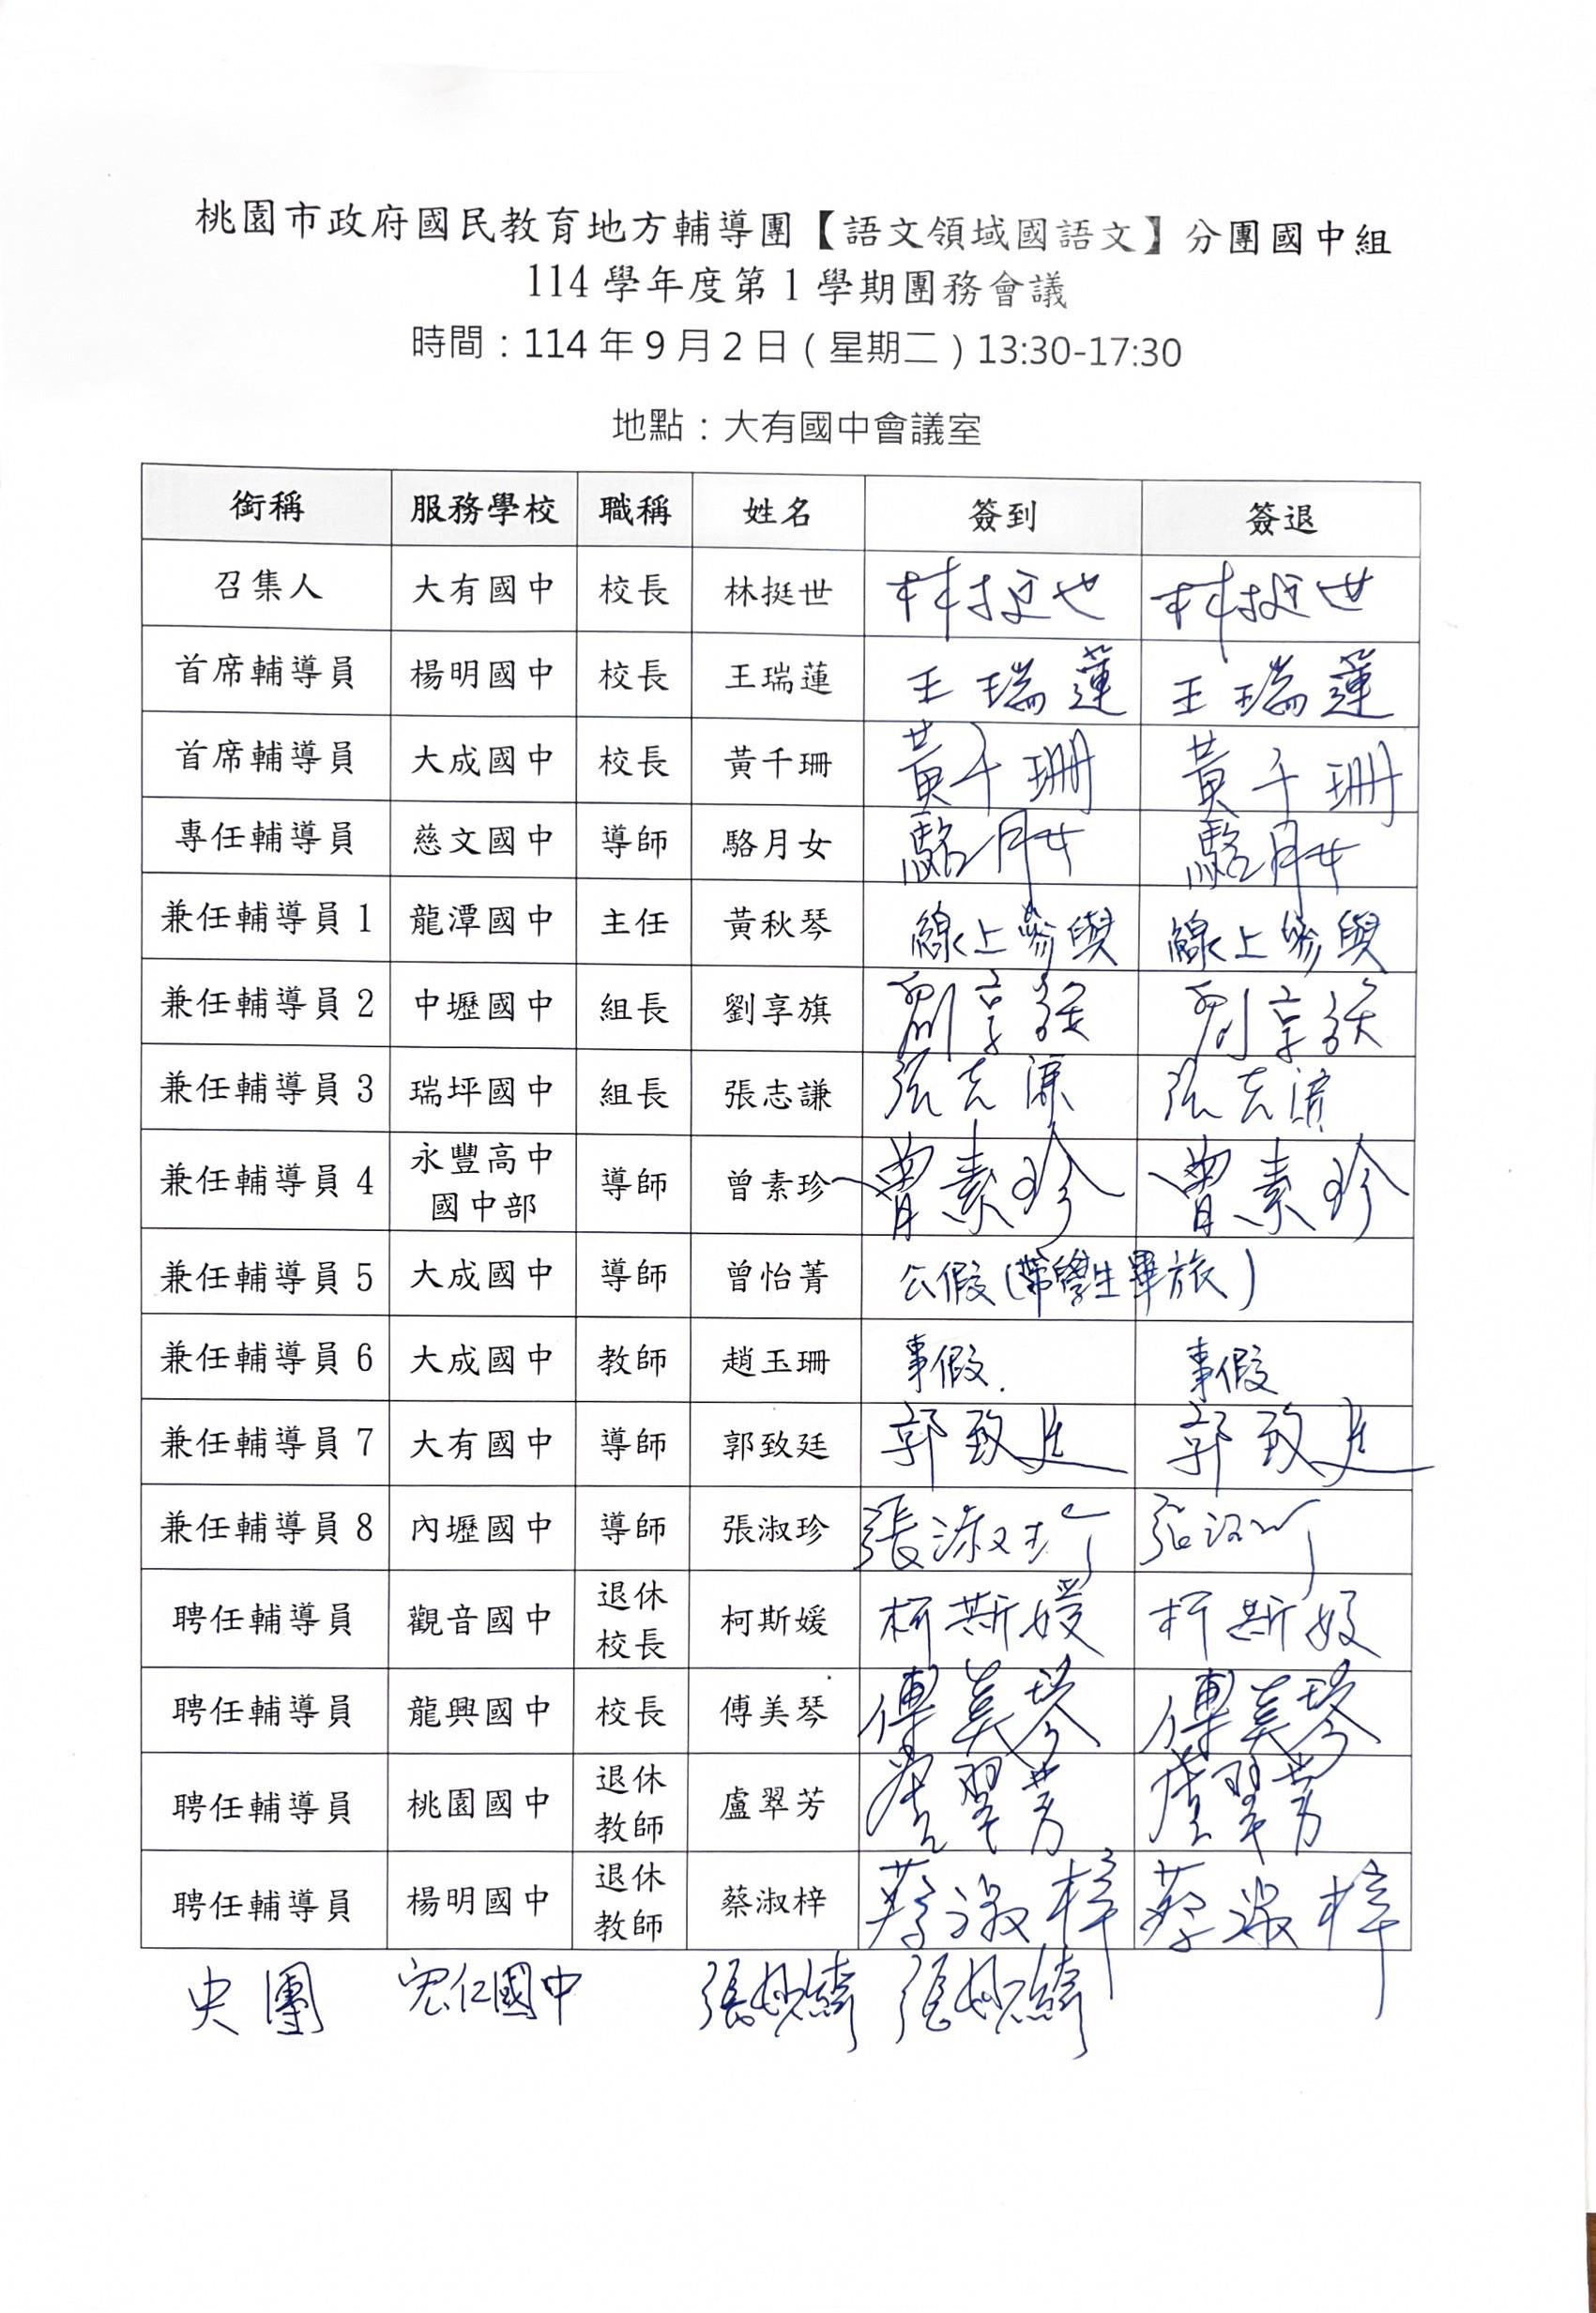 桃園市政府國民教育地方輔導團【語文領域國語文】分團國中組
114 學年度第 1 學期團務會議
時間：114 年 9 月 2 日（星期二）13:30-17:30
地點：大有國中會議室
銜稱 服務學校 職稱 姓名 簽到 簽退
召集人 大有國中 校長 林挺世 林挺世 林挺世
首席輔導員 楊明國中 校長 王瑞蓮 王瑞蓮 王瑞蓮
首席輔導員 大成國中 校長 黃千珊 黃千珊 黃千珊
專任輔導員 慈文國中 導師 駱月女 駱月女 駱月女
兼任輔導員 1 龍潭國中 主任 黃秋琴 線上參與 線上參與
兼任輔導員 2 中壢國中 組長 劉享旗 劉享旗 劉享旗
兼任輔導員 3 瑞坪國中 組長 張志謙 張志謙 張志謙
兼任輔導員 4 永豐高中 導師 曾素珍 曾素珍 曾素珍
國中部
兼任輔導員 5 大成國中 導師 曾怡菁 公假(帶學生畢旅)
兼任輔導員 6 大成國中 教師 趙玉珊 事假. 事假
兼任輔導員 7 大有國中 導師 郭致廷 郭致廷 郭致廷
兼任輔導員 8 內壢國中 導師 張淑珍 張淑珍
聘任輔導員 觀音國中 退休 柯斯媛 柯斯媛 柯斯媛
校長
聘任輔導員 龍興國中 校長 傅美琴 傅美琴 傅美琴
聘任輔導員 桃園國中 退休 盧翠芳 盧翠芳 盧翠芳
教師
聘任輔導員 楊明國中 退休 蔡淑梓 蔡淑梓 蔡淑梓
教師
央團 宏仁國中